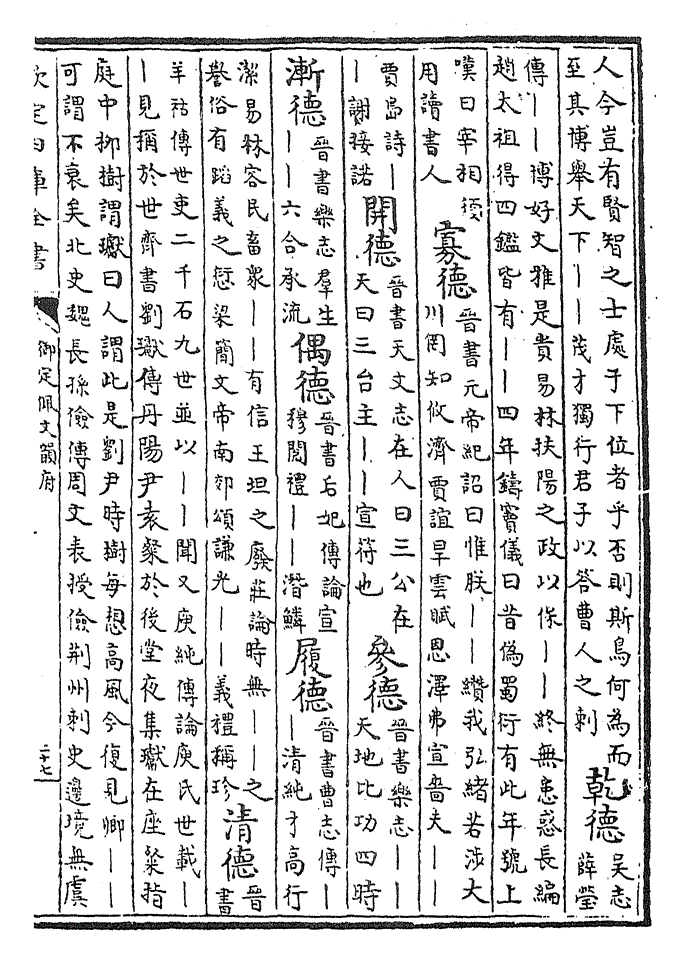 人今豈有賢智之士處于下位者乎否則斯鳥何為而
至其博舉天下——茂才獨行君子以答曹人之刺
乾德
吳志
薛瑩
傳——博好文雅是貴易林扶陽之政以保——終無患惑長編
趙太祖得四鑑皆有——四年鑄竇儀曰昔偽蜀衍有此年號上
嘆曰宰相須
用讀書人
寡德
晉書元帝紀詔曰惟朕——纘我弘緒若涉大
川罔知攸濟賈誼旱雲賦恩澤弗宣嗇夫——
賈島詩—
—謝接諾
開德
晉書天文志在人曰三公在
天曰三台主——宣符也
參德
晉書樂志——
天地比功四時
漸德
晉書樂志羣生
——六合承流
偶德
晉書后妃傳論宣
穆閲禮——潛鱗
履德
晉書曹志傳—
—清純才高行
潔易林容民畜衆——有信王坦之廢莊論時無——之
譽俗有蹈義之愆梁簡文帝南郊頌謙光——義禮稱珍
清德
晉
書
羊祜傳世吏二千石九世並以——聞又庾純傳論庾氏世載—
—見稱於世齊書劉瓛傳丹陽尹袁粲於後堂夜集瓛在座粲指
庭中柳樹謂瓛曰人謂此是劉尹時樹每想高風今復見卿——
可謂不衰矣北史魏長孫儉傳周文表授儉荆州刺史邊境無虞
欽定四庫全書
御定佩文韻府
二十七